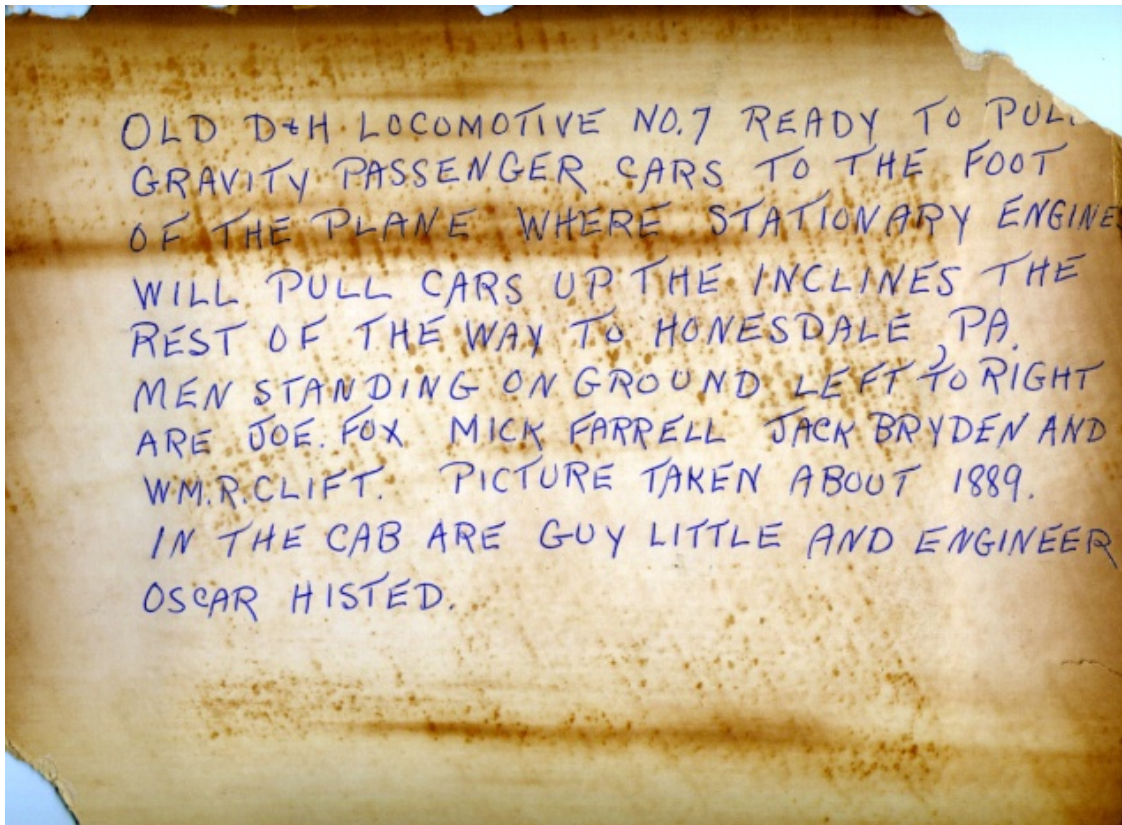 OLD D&H. LOCOMOTIVE NO.7 READY TO PULL
GRAVITY PASSENGER CARS TO THE FOOT
OF THE PLANE WHERE STATIONARY ENGINES
WILL PULL CARS UP THE INCLINES THE
REST OF THE WAY TO HONESDALE, PA.
MEN STANDING ON GROUND LEFT TO RIGHT
ARE JOE. FOX MICK FARRELL JACK BRYDEN AND
WM.R.CLIFT. PICTURE TAKEN ABOUT 1889.
IN THE CAB ARE GUY LITTLE AND ENGINEER
OSCAR HISTED.